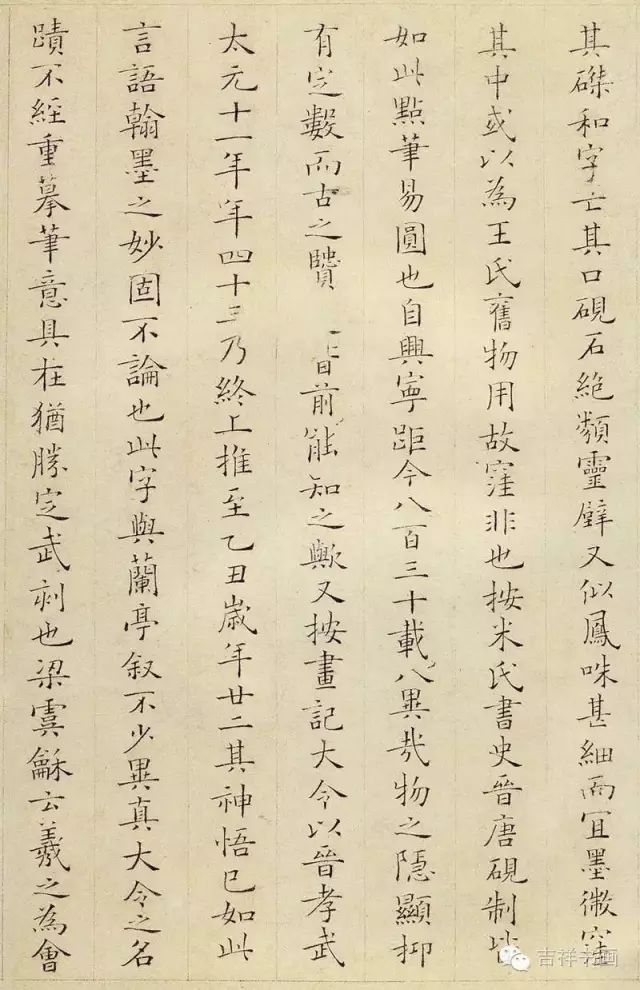 其磔和字亡其口硯石絶類靈壁又似鳳咮甚細而宜墨微窪
其中或以為王氏舊物用故窪非也按米氏書史晉唐硯制皆
如此點筆易圓也自興寧距今八百三十載八異哉物之隱顯抑
有定數而古之賢前能知之歟又按畫記大令以晉孝武
太元十一年年四十三乃終上推至乙丑歲年廿二其神悟已如此
言語翰墨之妙固不論也此字與蘭亭叙不少異真大令之名
蹟不經重摹筆意具在猶勝定武刻也梁虞龢云羲之為會
吉祥书画